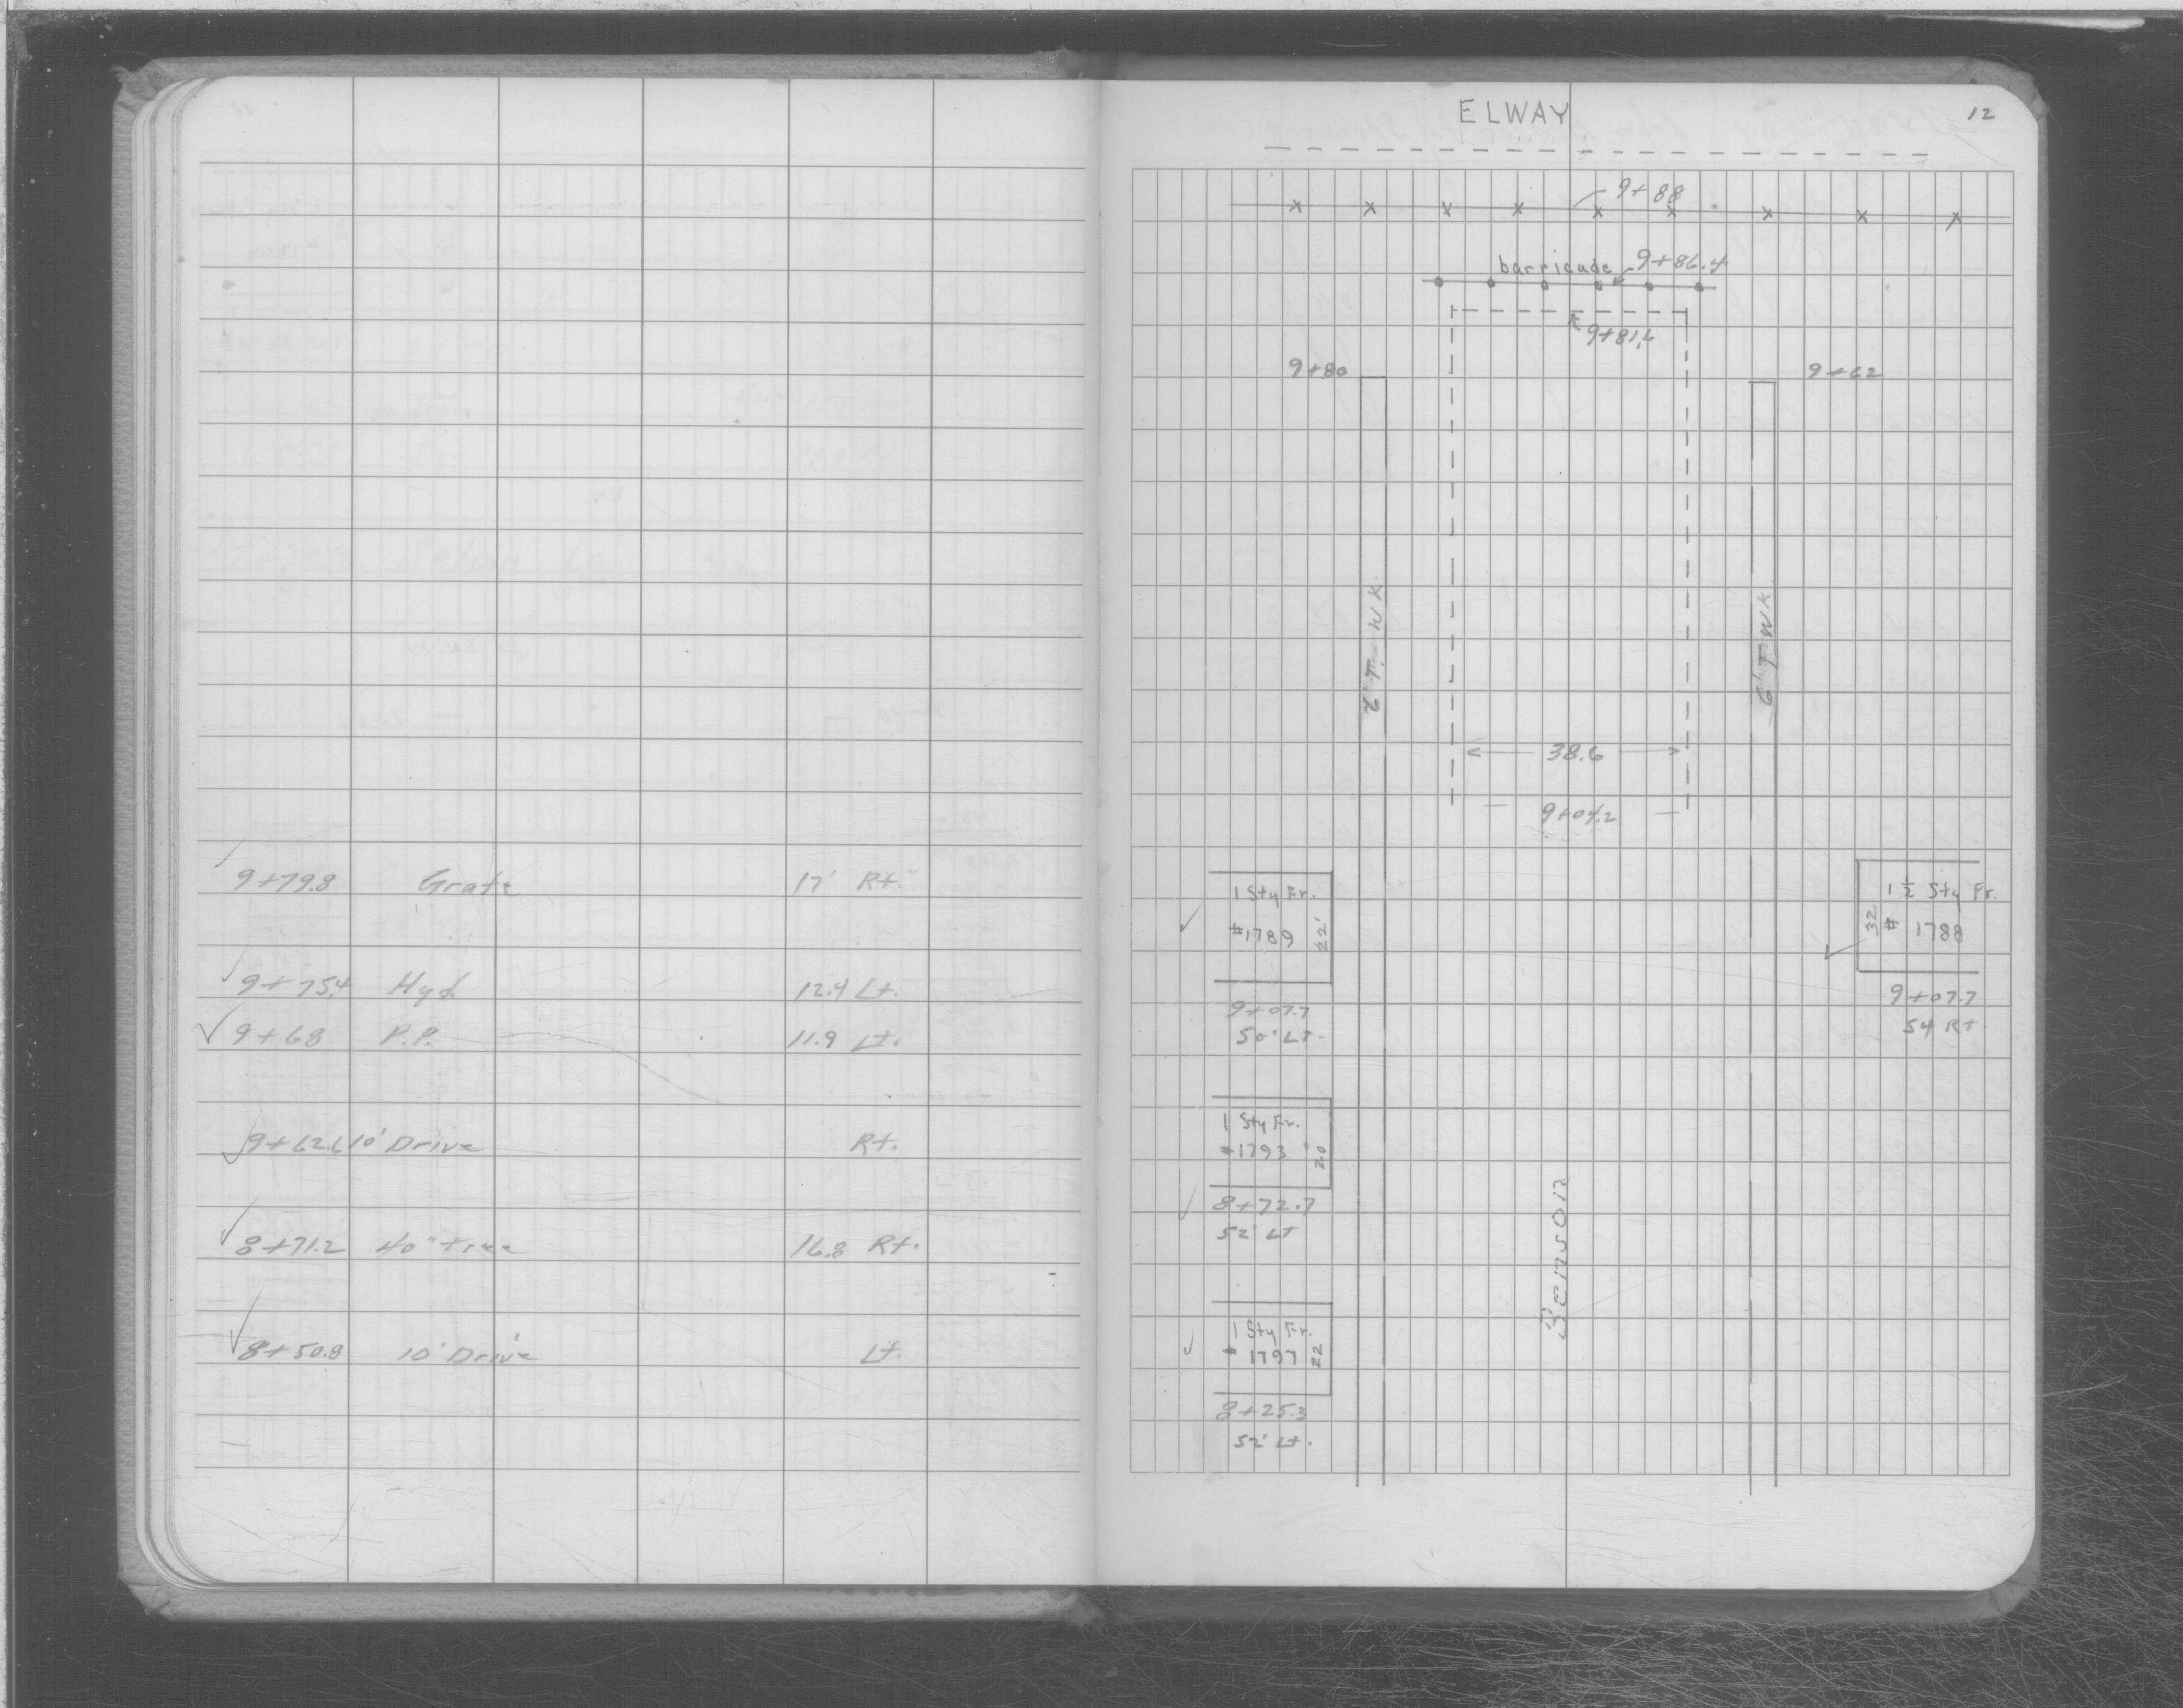 9+79.8 Grate 17' Rt.
9+75.4 Hyd. 12.4 Lt.
9+68 P.P. 11.9 Lt.
9+62.6 10' Drive Rt.
8+71.2 40" tree 16.8 Rt.
8+50.8 10' Drive Lt.
ELWAY
12
9+88
barricade 9+86.4
9+81.6
9+80
9+62
6' T. WK.
6' T. WK.
38.6
9+04.2
1 Sty Fr.
#1789
22'
9+07.7
50' Lt.
1 1/2 Sty Fr.
# 1788
32
9+07.7
54 Rt
1 Sty Fr.
#1793
20
8+72.7
52' Lt
Benson
1 Sty Fr.
# 1797
22
8+25.3
52' Lt.